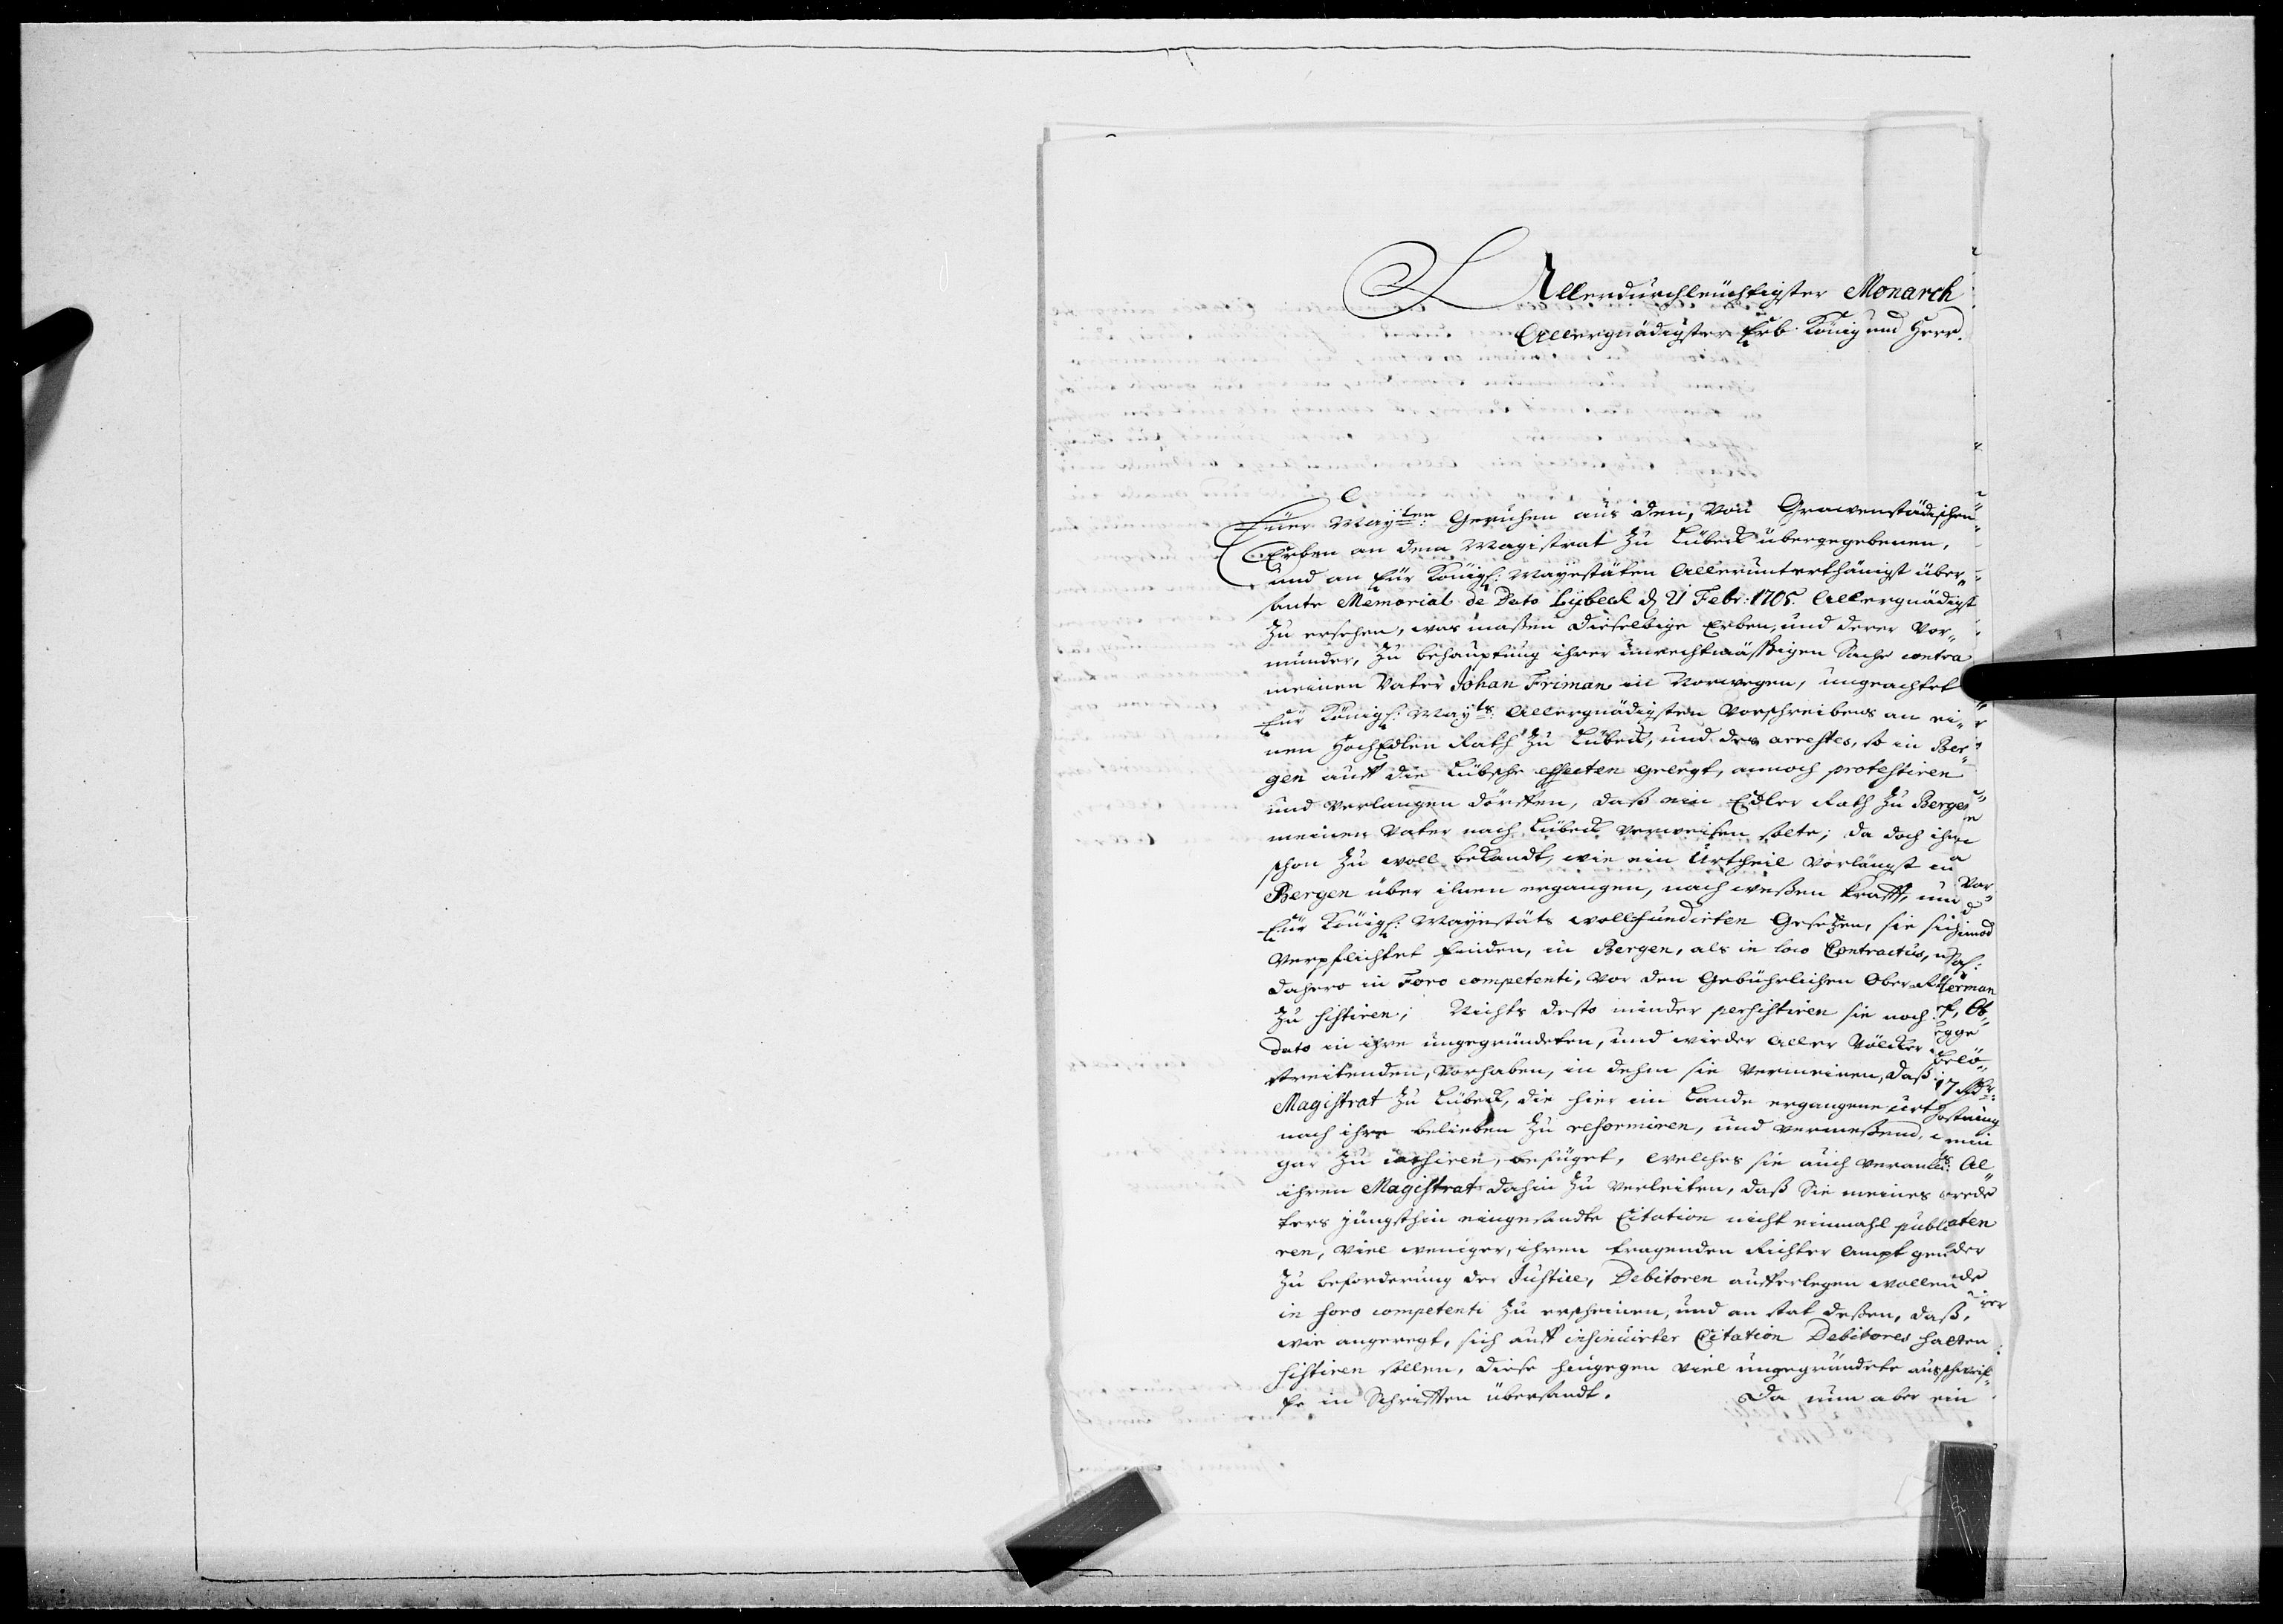 Allerdurchleuchtigster Monarch
Allergnädigster Erb König und Herr.
Euer Mayten: Geruhen aus den, von Gravenstädischen
Erben an dem Magistrat zu Lübeck übergegebenen,
und an Eur Königl: Mayestäten Allerunterthänigst über„
sante Memorial de Dato Lybeck d 21 Febr: 1705. Allergnädigst
zu ersehen, was maßen dieselbige Erben, und derer Vor„
münder, zu behauptung ihrer unrechtmässigen Sache contra
meinen Vater Johan Friman in Norwegen, ungeachtet
Eur Königl: Mayts: Allergnädigsten Vorschreibens an ei„
nen HochEdlen Rath zu Lübeck, und des arrestes, so in Ber„
gen auff die Lübsche effecten gelegt, annoch protestiren
und verlangen dörffen, daß ein Edler Rath zu Bergen
meinen Vater nach Lübeck verweisen solte; da doch ihnen
schon zu woll bekandt, wie ein Urtheil vorlängst in
Bergen über ihnen ergangen, nach weßen krafft, und
Eur Königl: Mayestäts wollfundirten Gesetzen, sie sich
verpflichtet finden, in Bergen, als in loco Contractus,
dahero in Foro competenti, vor den Gebührlichen Ober
zu sistiren; Nichts desto minder persistiren sie noch
dato in ihre ungegründeten, und wieder aller Völcker
streitenden, vorhaben, in dehm sie vermeinen, daß
Magistrat zu Lübeck, die hier im Lande ergangene
nach ihre belieben zu reformiren, und vermeßend,
gar zu cassiren, befüget, welches sie auch
ihren Magistrat dahin zu verleiten, daß Sie meines
ters jüngsthin eingesandte Citation nicht einmahl
ren, viel weniger, ihren tragenden Richter ampt
zu beforderung der Justice, Debitoren aufferlegen wollen
in foro competenti zu erscheinen, und an stat deßen, daß,
wie angeregt, sich auff insinuirter Citation Debitores hatten
sistiren sollen, diese hingegen viel ungegründete ausschweif„
fe in Schrifften übersandt. Da nun aber ein